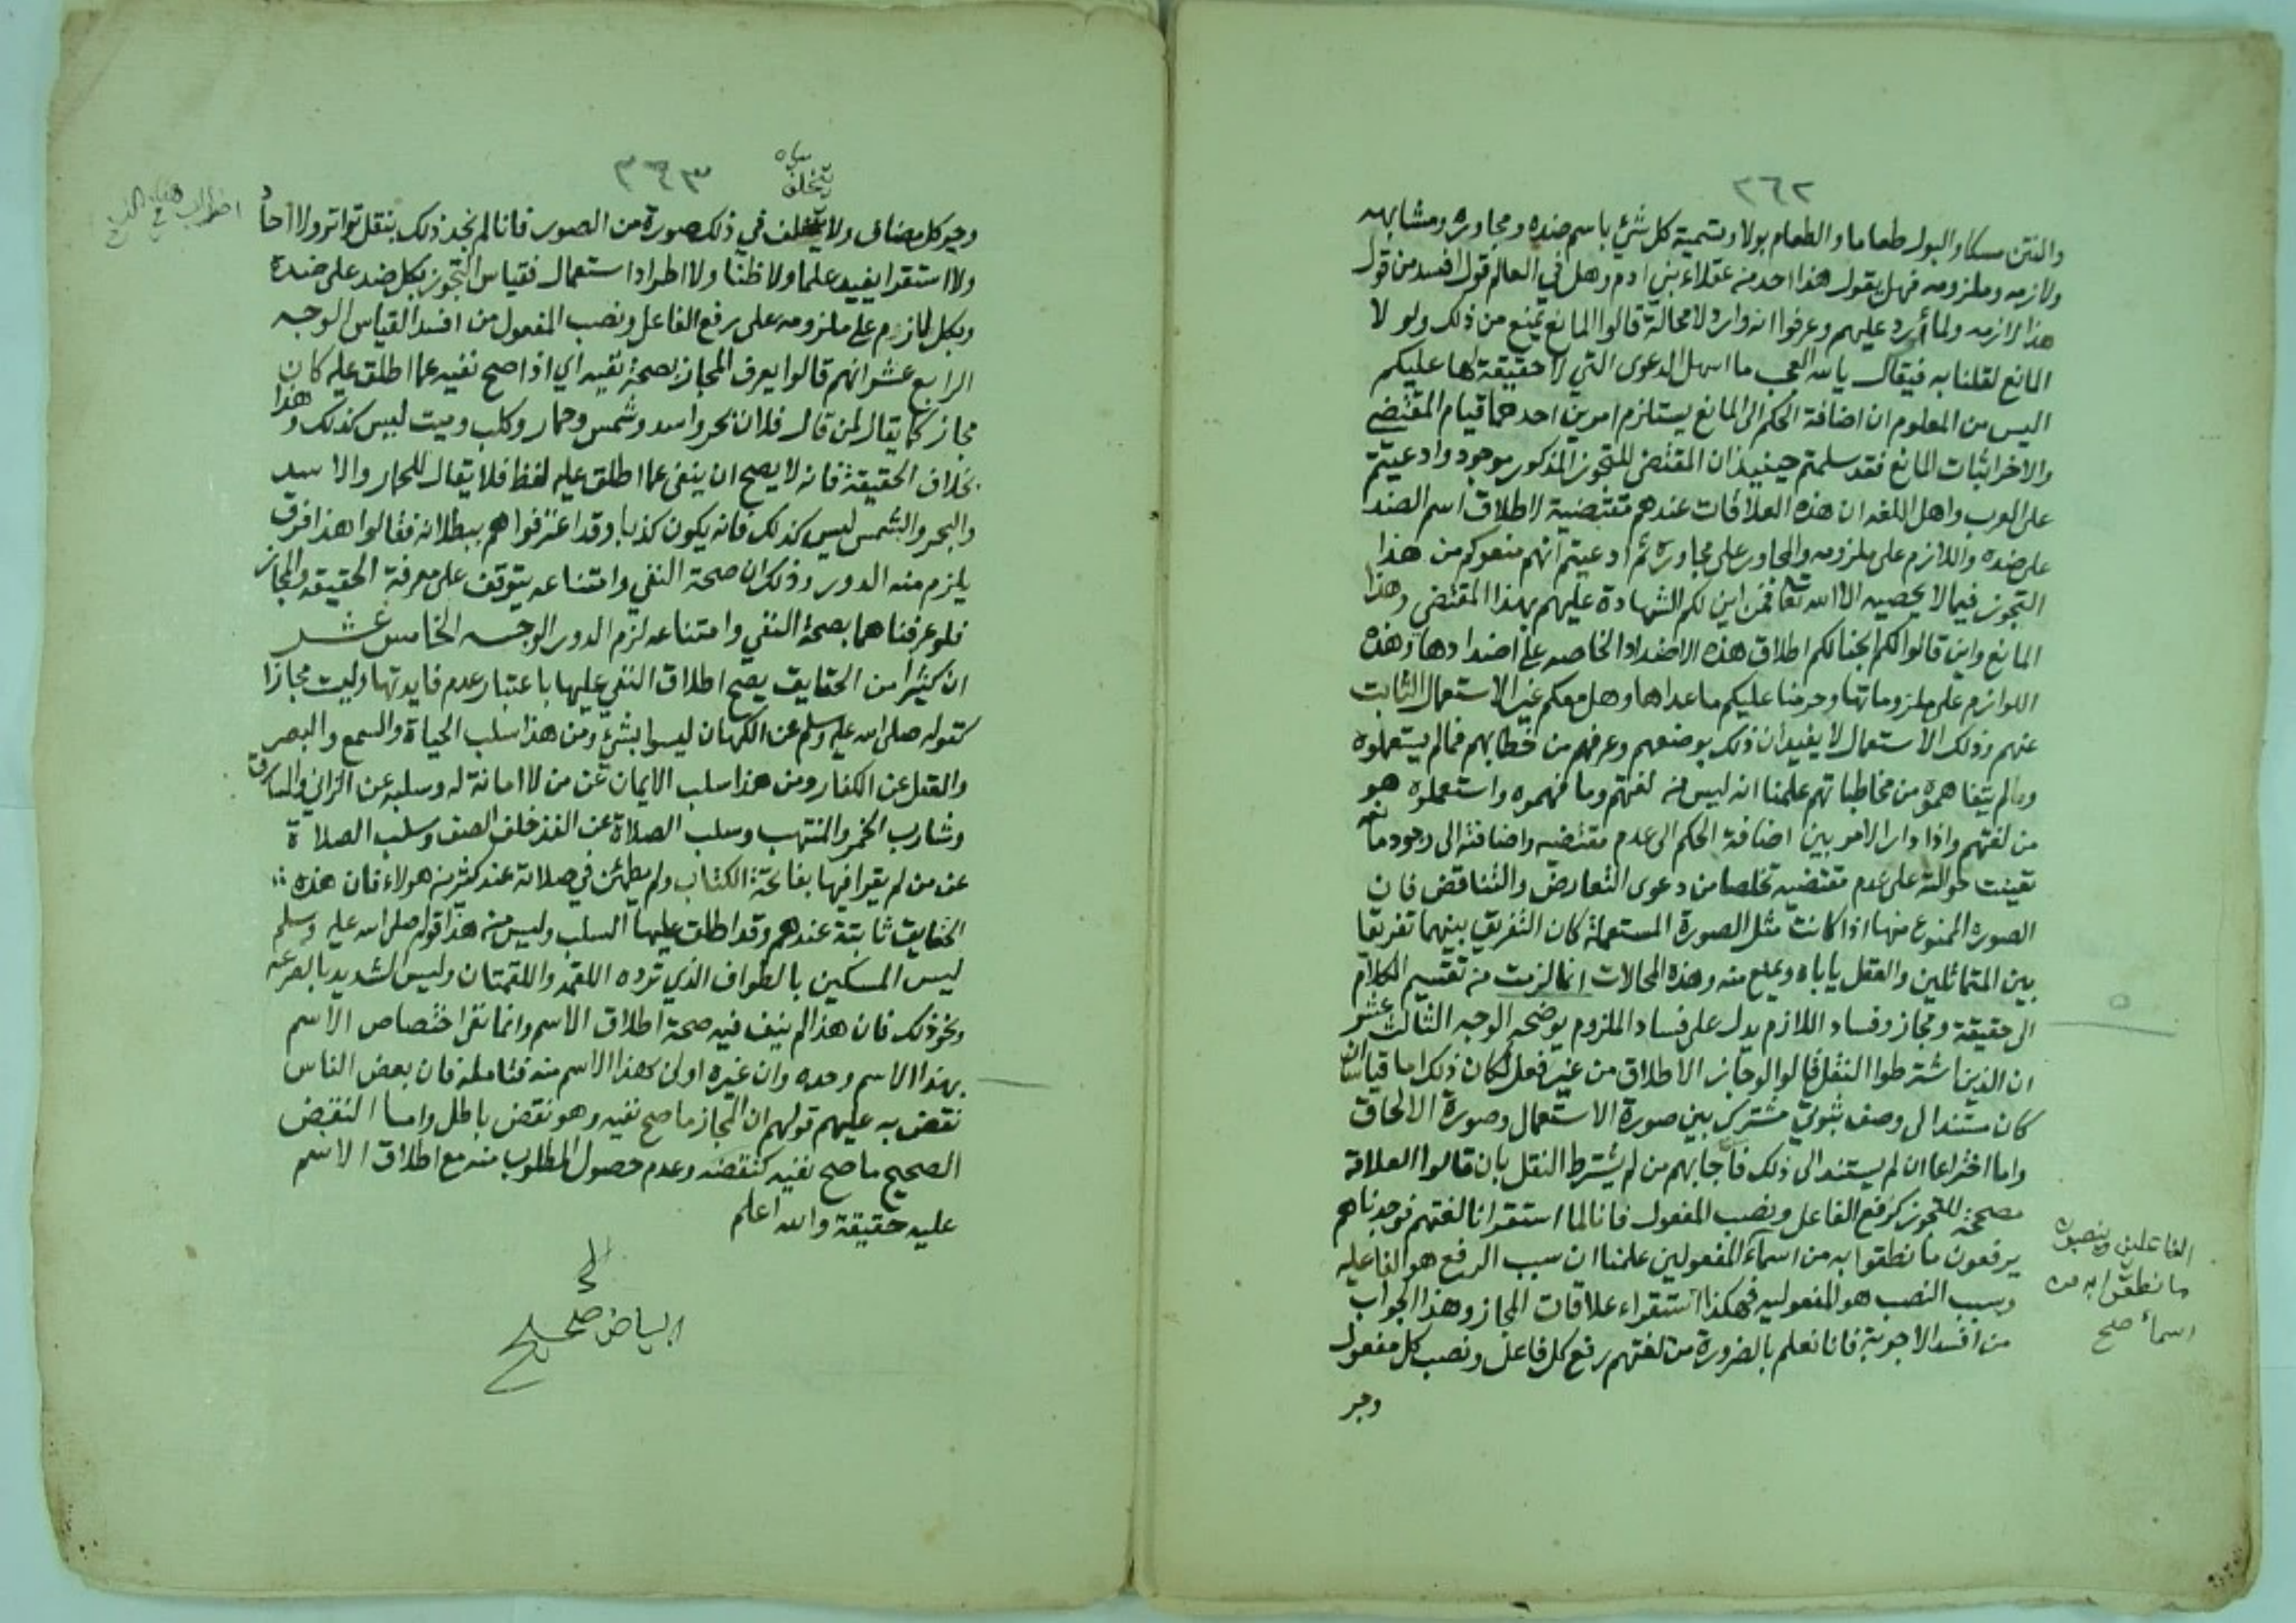 ٢٦٢
والنتن مسكا والبول طعاما والطعام بولا وتسمية كل شيء باسم ضده ومجاوره ومشابهه
ولازمه وملزومه فهل يقول هذا احد من عقلاء بني ادم وهل في العالم قول افسد من قول
هذا لازمه ولما أورد عليهم وعرفوا انه وارد لا محالة قالوا المانع يمنع من ذلك ولولا
المانع لقلنا به فيقال يالله العجب ما اسهل الدعوى التي لا حقيقة لها عليكم
اليس من المعلوم ان اضافة الحكم الى المانع يستلزم امرين احدهما قيام المقتضي
والاخر اثبات المانع فقد سلمتم حينيذ ان المقتضى للتجوز المذكور موجود وادعيتم
على العرب واهل اللغه ان هذه العلاقات عندهم مقتضية لاطلاق اسم الضد
على ضده واللازم على ملزومه والمجاور على مجاوره ثم ادعيتم انهم منعوكم من هذا
التجوز فيما لا يحصيه الا الله تعا فمن اين لكم الشهادة عليهم بهذا المقتضى وهذا
المانع واين قالوا لكم ابحنا لكم اطلاق هذه الاضداد الخاصه على اضدادها وهذه
اللوازم على ملزوماتها وحرمنا عليكم ما عداها وهل معكم غير الاستعمال الثابت
عنهم وذلك الاستعمال لا يفيد ان ذلك بوضعهم وعرفهم من خطابهم فما لم يستعملوه
وما لم يتفاهموه من مخاطباتهم علمنا انه ليس من لغتهم وما فهموه واستعملوه هو
من لغتهم واذا دار الامر بين اضافة الحكم الى عدم مقتضيه واضافته الى وجود مانعه
تعينت حوالته على عدم مقتضيه تخلصا من دعوى التعارض والتناقض فان
الصوره الممنوع منها اذا كانت مثل الصورة المستعملة كان التفريق بينهما تفريقا
بين المتماثلين والعقل ياباه ويمنع منه وهذه المحالات انما لزمت من تقسيم الكلام
الى حقيقة ومجاز وفساد اللازم يدل على فساد الملزوم يوضحه الوجه الثالث عشر
ان الذين اشترطوا النقل قالوا لو جاز الاطلاق من غير فعل لكان ذلك اما قياسا ان
كان مستندا الى وصف ثبوتي مشترك بين صورة الاستعمال وصورة الالحاق
واما اختراعا ان لم يستند الى ذلك فاجابهم من لم يشترط النقل بان قالوا العلاقة
مصححة للتجوز كرفع الفاعل ونصب المفعول فانا لما استقرانا لغتهم فوجدناهم
يرفعون ما نطقوا به من اسماء المفعولين علمنا ان سبب الرفع هو الفاعليه
وسبب النصب هو المفعوليه فهكذا استقراء علاقات المجاز وهذا الجواب
من افسد الاجوبة فانا نعلم بالضرورة من لغتهم رفع كل فاعل ونصب كل مفعول
وجر
الفاعلين وينصبون
ما نطقوا به من
اسماء صح
٢٦٣
يتخلف
وجر كل مضاف ولا يتخلف في ذلك صورة من الصور فانا لم نجد ذلك بنقل تواتر ولا احاد
ولا استقرا يفيد علما ولا ظنا ولا اطراد استعمال فقياس التجوز بكل ضد على ضده
وبكل لازم على ملزومه على رفع الفاعل ونصب المفعول من افسد القياس الوجه
الرابع عشر انهم قالوا يعرف المجاز بصحة نفيه اي اذا صح نفيه عما اطلق عليه كان
مجاز كما يقال لمن قال فلان بحر واسد وشمس وحمار وكلب وميت ليس كذلك وهذا
بخلاف الحقيقة فانه لا يصح ان ينفى عما اطلق عليه لفظ فلا يقال للحمار والاسد
والبحر والشمس ليس كذلك فانه يكون كذبا وقد اعترفوا هم ببطلانه فقالوا هذا فرق
يلزم منه الدور وذلك ان صحة النفي وامتناعه يتوقف على معرفة الحقيقه والمجاز
فلو عرفناهما بصحة النفي وامتناعه لزم الدور الوجه الخامس عشر
ان كثيرا من الحقايق يصح اطلاق النفي عليها باعتبار عدم فايدتها وليست مجازا
كقوله صلى الله عليه وسلم عن الكهان ليسوا بشيء ومن هذا سلب الحياة والسمع والبصر
والعقل عن الكفار ومن هذا سلب الايمان عن من لا امانة له وسلبه عن الزاني والسارق
وشارب الخمر والمنتهب وسلب الصلاة عن الفذ خلف الصف وسلب الصلاة
عن من لم يقرا فيها بفاتحة الكتاب ولم يطمئن في صلاته عند كثير من هولاء فان هذه
الحقايق ثابتة عندهم وقد اطلق عليها السلب وليس من هذا قوله صلى الله عليه وسلم
ليس المسكين بالطواف الذي ترده اللقمه واللقمتان وليس الشديد بالصرعه
ونحو ذلك فان هذا لم ينف فيه صحة اطلاق الاسم وانما نفى اختصاص الاسم
بهذا الاسم وحده وان غيره اولى بهذا الاسم منه فتامله فان بعض الناس
نقض به عليهم قولهم ان المجاز ما صح نفيه وهو نقض باطل واما النقض
الصحيح ما صح نفيه كنقضه وعدم حصول المطلوب منه مع اطلاق الاسم
عليه حقيقة والله اعلم
البياض صحيح